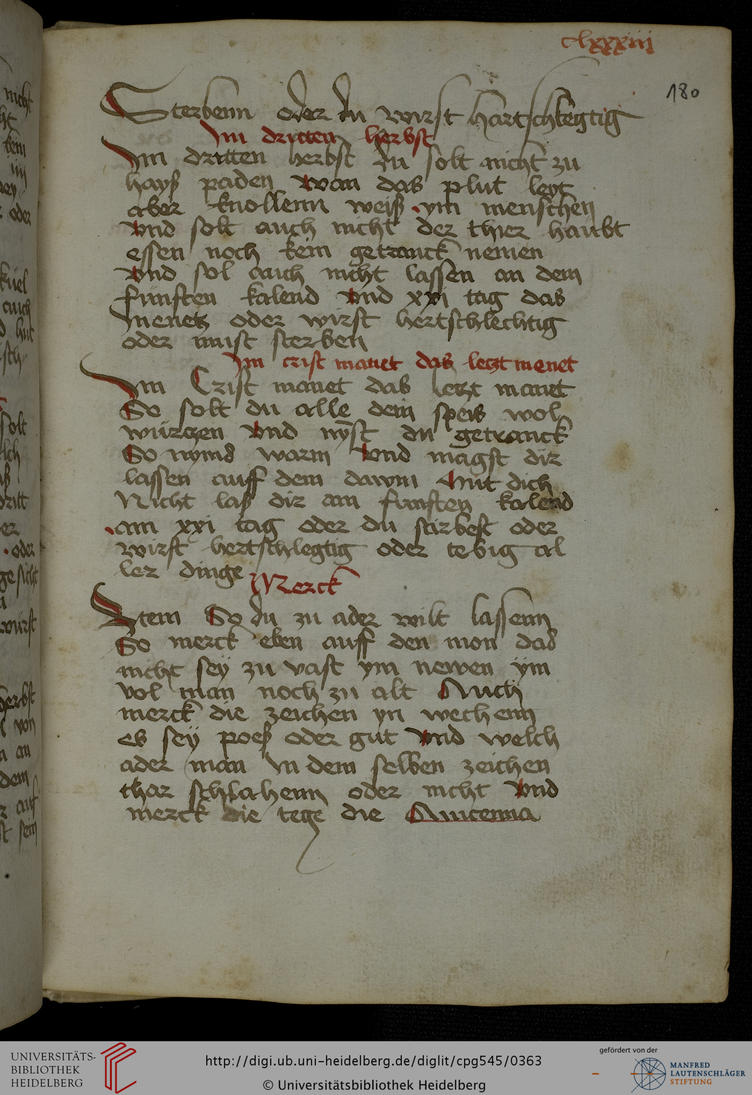 clxxxiij
180
Sterbenn oder du wirst hartschlegtig
Im dritten herbst
Im dritten herbst du solt nicht zu
hayß paden wan das plut leyt
aber knollenn weiß ym menschen
vnd solt auch nicht der thier haubt
essen noch kein getranck nemen
vnd sol auch nicht lassen an dem
funften kalend vnd xxi tag das
menetz oder wirst hertschlechtig
oder must sterben
Im crist manet das letzt menet
Im Crist manet das letzt manet
So solt du alle dein speis wol
würtzen vnd nyst du getranck
So nymd warm vnd magst dir
lassen auff dem dawm Mit dich
Nicht las dir am funften kalend
am xxi tag oder du stirbest oder
wirst hertschlegtig oder tebig al
ler dinge Merck
Item So du zu ader wilt lassenn
So merck eben auff den mon das
nicht sey zu vast ym newen ym
vol man noch zu alt Auch
merck die zeichen yn wechenn
es sey poeß oder gut vnd welch
ader man yn dem selben zeichen
thar schlachenn oder nicht vnd
merck die tege die Auicenna
UNIVERSITÄTS-
BIBLIOTHEK
HEIDELBERG
http://digi.ub.uni-heidelberg.de/diglit/cpg545/0363
© Universitätsbibliothek Heidelberg
gefördert von der
MANFRED
LAUTENSCHLÄGER
STIFTUNG